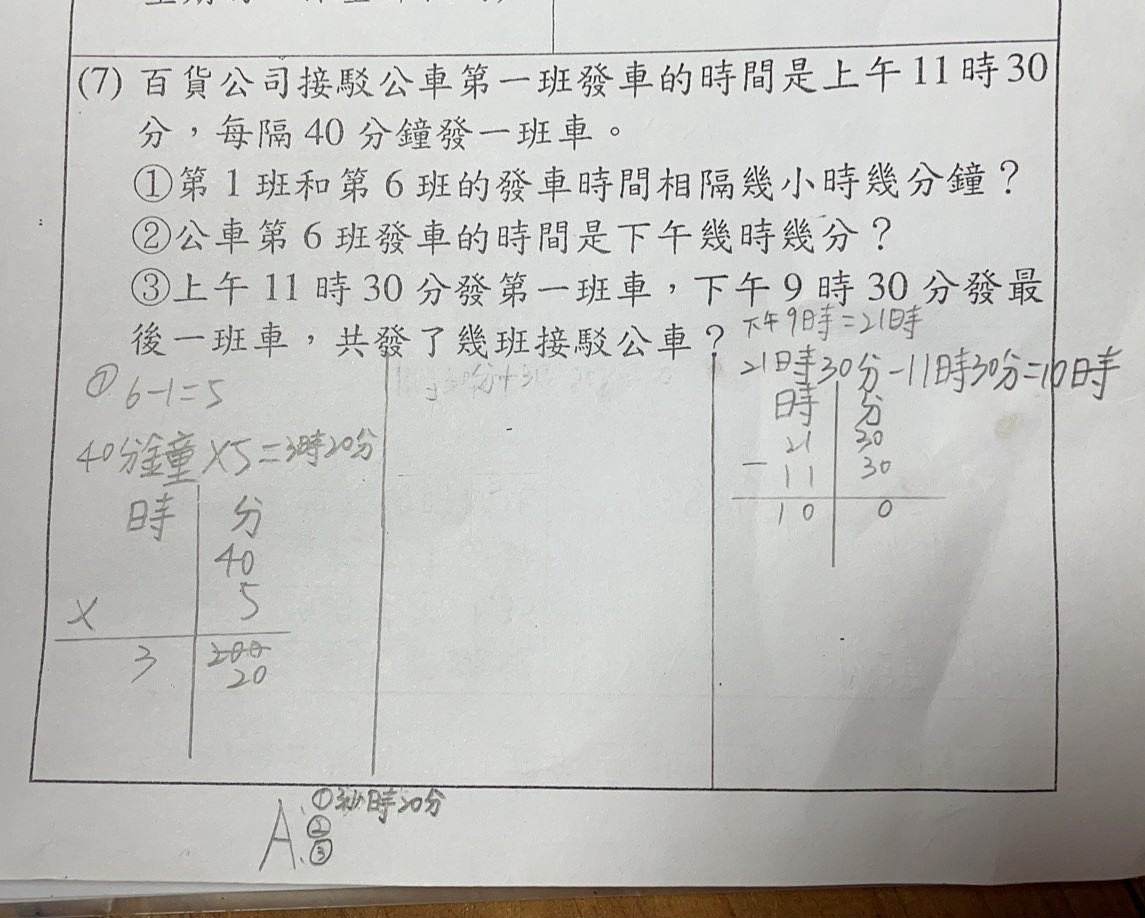 (7) 百貨公司接駁公車第一班發車的時間是上午11時30
分，每隔40分鐘發一班車。
①第1班和第6班的發車時間相隔幾小時幾分鐘？
②公車第6班發車的時間是下午幾時幾分？
③上午11時30分發第一班車，下午9時30分發最
後一班車，共發了幾班接駁公車？
① 6-1=5
40分鐘×5=3時20分
時 分
40
× 5
3 200
20
下午9時=21時
21時30分-11時30分=10時
時 分
21 30
- 11 30
10 0
A:①3小時20分
②
③